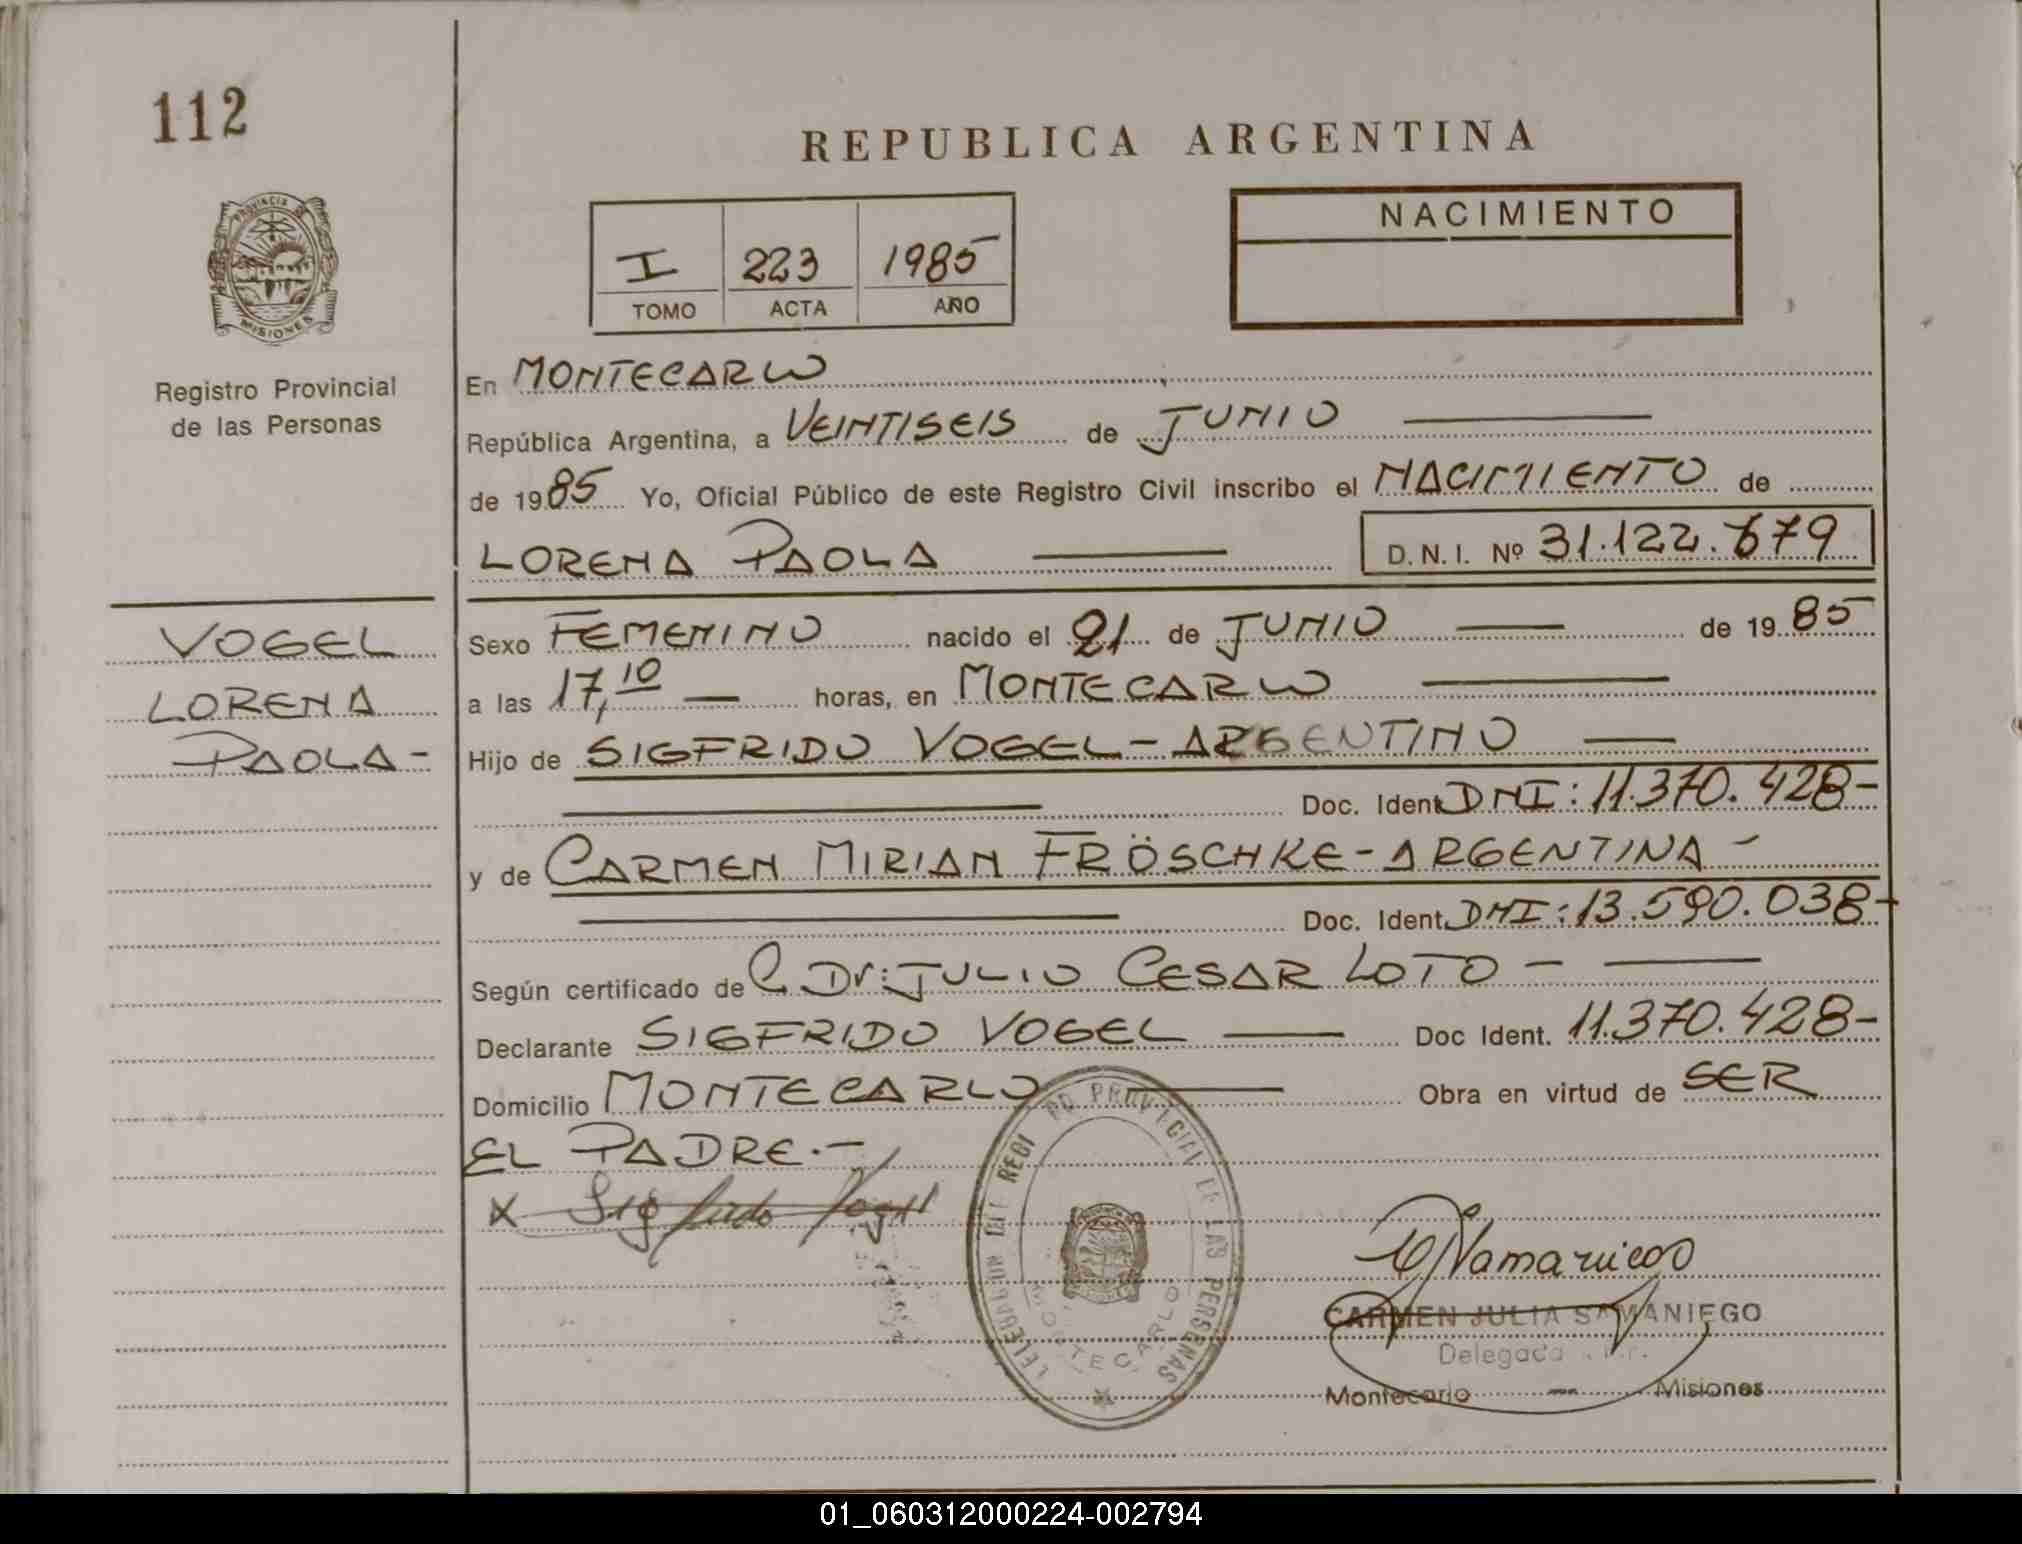 112
REPUBLICA ARGENTINA
PROVINCIA DE
MISIONES
I 223 1985
TOMO ACTA AÑO
NACIMIENTO
Registro Provincial
de las Personas
En MONTECARLO
República Argentina, a VEINTISEIS de JUNIO
de 1985 Yo, Oficial Público de este Registro Civil inscribo el NACIMIENTO de
LORENA PAOLA D.N.I. Nº 31.122.679
VOGEL
LORENA
PAOLA-
Sexo FEMENINO nacido el 21 de JUNIO de 1985
a las 17,10 horas, en MONTECARLO
Hijo de SIGFRIDO VOGEL-ARGENTINO
Doc. Ident. DNI: 11.370.428-
y de CARMEN MIRIAN FRÖSCHKE-ARGENTINA-
Doc. Ident. DNI: 13.590.038-
Según certificado de C. Dr: JULIO CESAR LOTO-
Declarante SIGFRIDO VOGEL Doc Ident. 11.370.428-
Domicilio MONTECARLO Obra en virtud de SER
EL PADRE.-
X Sigfrido Vogel
REGISTRO PROVINCIAL DE LAS PERSONAS
MONTECARLO
CARMEN JULIA SAMANIEGO
Delegada
Montecarlo - Misiones
01_060312000224-002794